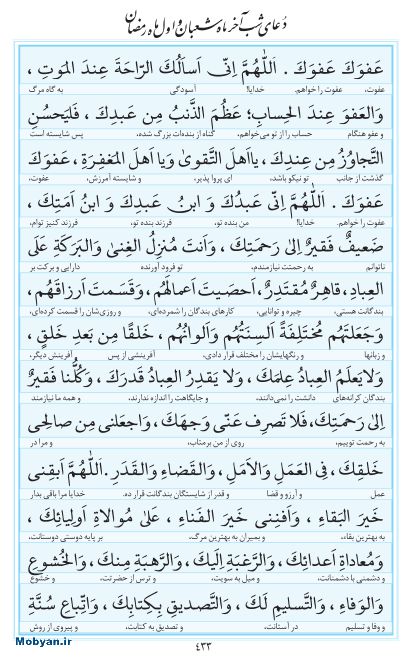 دعای شب آخر ماه شعبان و اول ماه رمضان
عَفوَكَ عَفوَكَ . اَللّٰهُمَّ اِنّى اَسأَلُكَ الرّاحَةَ عِندَ المَوتِ ،
عفوت، عفوت را خواهم. خدایا! آسودگی به گاه مرگ
وَالعَفوَ عِندَ الحِسابِ؛ عَظُمَ الذَّنبُ مِن عَبدِكَ ، فَليَحسُنِ
و عفو هنگام حساب را از تو می‌خواهم، گناه از بنده‌ات بزرگ شده، پس شایسته است
التَّجاوُزُ مِن عِندِكَ ، يااَهلَ التَّقوىٰ وَيا اَهلَ المَغفِرَةِ ، عَفوَكَ
گذشت از جانب تو نیکو باشد، ای پروا پذیر، و شایسته آمرزش، عفوت،
عَفوَكَ . اَللّٰهُمَّ اِنّى عَبدُكَ وَ ابنُ عَبدِكَ وَ ابنُ اَمَتِكَ ،
عفوت را خواهم. خدایا! من بنده تو، فرزند بنده تو، فرزند کنیز توام،
ضَعيفٌ فَقيرٌ اِلىٰ رَحمَتِكَ ، وَاَنتَ مُنزِلُ الغِنىٰ وَالبَرَكَةِ عَلَى
ناتوانم به رحمتت نیازمنده، تو فرود آورنده دارایی و برکت بر
العِبادِ، قاهِرٌ مُقتَدِرٌ، اَحصَيتَ اَعمالَهُم ، وَقَسَمتَ اَرزاقَهُم ،
بندگانت هستی، چیره و توانایی، کارهای بندگان را شمرده‌ای، و روزی‌شان را قسمت کرده‌ای،
وَجَعَلتَهُم مُختَلِفَةً اَلسِنَتُهُم وَاَلوانُهُم ، خَلقًا مِن بَعدِ خَلقٍ ،
و زبانها و رنگهایشان را مختلف قرار دادی، آفرینشی از پس آفرینش دیگر،
وَلايَعلَمُ العِبادُ عِلمَكَ ، وَلا يَقدِرُ العِبادُ قَدرَكَ ، وَكُلُّنا فَقيرٌ
بندگان کرانه‌های دانشت را نمی‌دانند، و جایگاهت را اندازه ندارند، و همه ما نیازمند
اِلىٰ رَحمَتِكَ، فَلا تَصرِف عَنّى وَجهَكَ ، وَاجعَلنى مِن صالِحى
به رحمت توییم، روی از من برمتاب، و مرا در
خَلقِكَ ، فِى العَمَلِ وَالاَمَلِ ، وَالقَضاءِ وَالقَدَرِ . اَللّٰهُمَّ اَبقِنى
عمل و آرزو و قضا و قدر از شایستگان بندگانت قرار ده. خدایا مرا باقی بدار
خَيرَ البَقاءِ ، وَاَفنِنى خَيرَ الفَناءِ ، عَلىٰ مُوالاةِ اَولِيائِكَ ،
به بهترین بقاء، و بمیران به بهترین مرگ، بر پایه دوستی دوستانت،
وَمُعاداةِ اَعدائِكَ ، وَالرَّغبَةِ اِلَيكَ ، وَالرَّهبَةِ مِنكَ ، وَالخُشوعِ
و دشمنی با دشمنانت، و میل به سویت، و ترس از حضرتت، و خشوع
وَالوَفاءِ ، وَالتَّسليمِ لَكَ ، وَالتَّصديقِ بِكِتابِكَ ، وَاتِّباعِ سُنَّةِ
و وفا و تسلیم در آستانت، و تصدیق به کتابت، و پیروی از روش
Mobyan.ir
۴۳۳